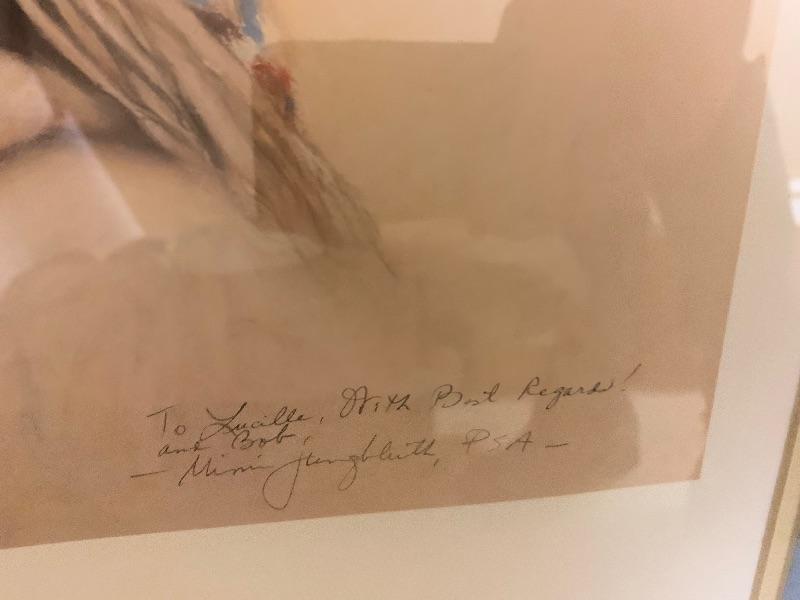 To Lucille, With Best Regards!
and Bob,
— Mimi Jungbluth, PSA —